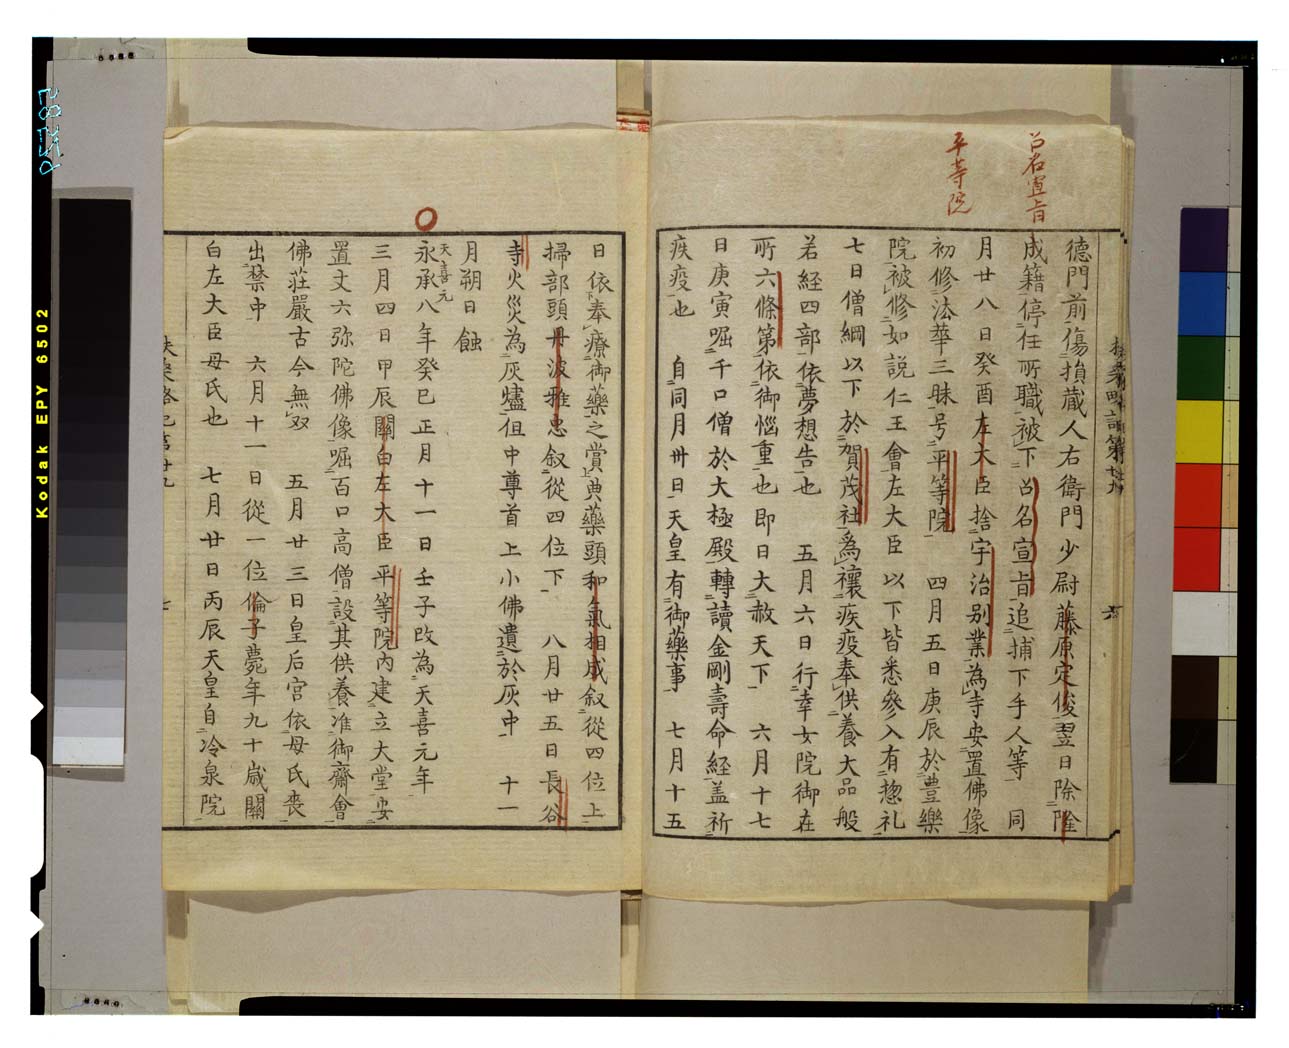 召名宣旨
平等院
德門前傷損蔵人右衛門少尉藤原定俊翌日除
成籍停任所職被下召名宣旨追捕下手人等 同
月廿八日癸酉左大臣捨宇治別業為寺安置佛像
初修法華三昧号平等院 四月五日庚辰於豊樂
院被修如説仁王會左大臣以下皆悉參入有惣礼
七日僧綱以下於賀茂社為禳疾疫奉供養大品般
若経四部依夢想告也 五月六日行幸女院御在
所六條第依御惱重也即日大赦天下 六月十七
日庚寅啒千口僧於大極殿轉讀金剛壽命経盖祈
疾疫也 自同月卅日天皇有御藥事 七月十五
日依奉療御藥之賞典藥頭和氣相成叙從四位上
掃部頭丹波雅忠叙從四位下 八月廿五日長谷
寺火災為灰燼但中尊首上小佛遺於灰中 十一
月朔日蝕
天喜元
永承八年癸巳正月十一日壬子改為天喜元年
三月四日甲辰關白左大臣平等院内建立大堂安
置丈六弥陀佛像啒百口高僧設其供養准御齋會
佛荘嚴古今無双 五月廿三日皇后宮依母氏喪
出禁中 六月十一日從一位倫子薨年九十歳關
白左大臣母氏也 七月廿日丙辰天皇自冷泉院
Kodak EPY 6502